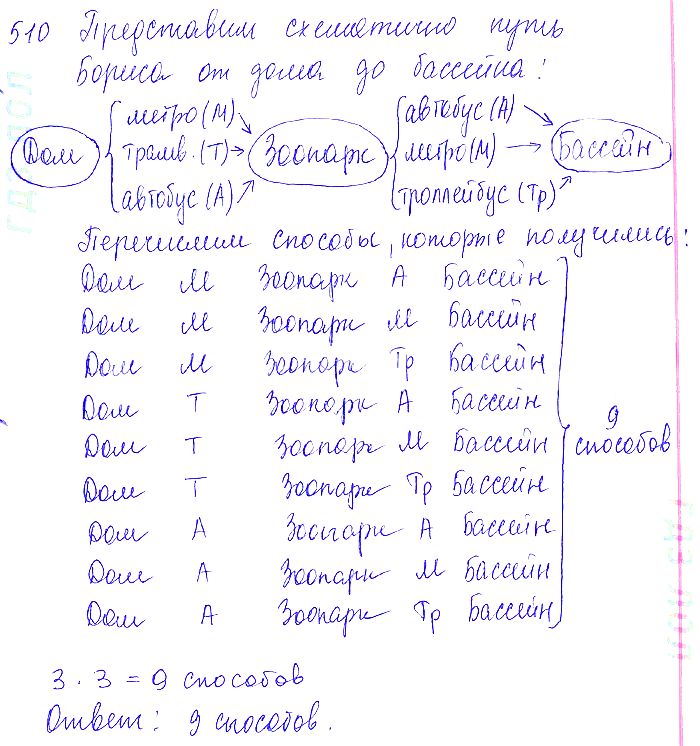 510 Представим схематично путь
Бориса от дома до бассейна:
метро (М) автобус (А)
Дом трамв. (Т) Зоопарк метро (М) Бассейн
автобус (А) троллейбус (Тр)
Перечислим способы, которые получились:
Дом М Зоопарк А Бассейн
Дом М Зоопарк М Бассейн
Дом М Зоопарк Тр Бассейн
Дом Т Зоопарк А Бассейн
Дом Т Зоопарк М Бассейн
Дом Т Зоопарк Тр Бассейн
Дом А Зоопарк А Бассейн
Дом А Зоопарк М Бассейн
Дом А Зоопарк Тр Бассейн
9
способов
3 · 3 = 9 способов
Ответ: 9 способов.